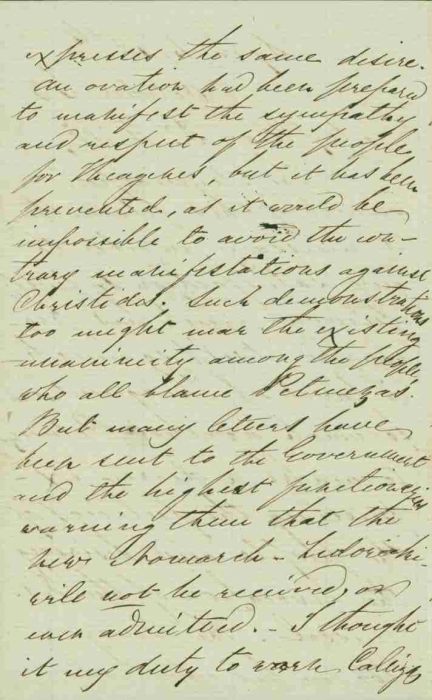 expresses the same desire.
An ovation had been prepared
to manifest the sympathy
and respect of the people
for Theagenes, but it has been
prevented, as it would be
impossible to avoid the con-
trary manifestations against
Christides. Such demonstrations
too might mar the existing
unanimity among the people,
who all blame Petmezas.
But many letters have
been sent to the Government
and the highest functionaries
warning them that the
new Nomarch -
will not be received, or
even admitted. - I thought
it my duty to warn